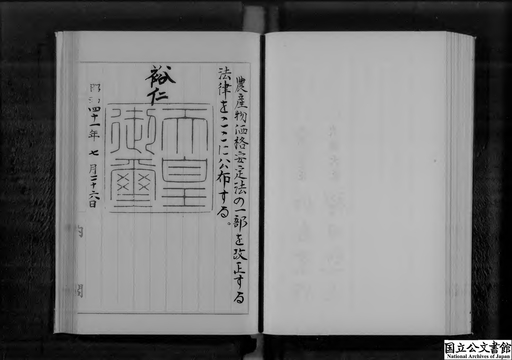 農産物価格安定法の一部を改正する
法律をここに公布する。
裕仁
天皇
御璽
昭和四十一年七月二十六日
内閣
国立公文書館
National Archives of Japan